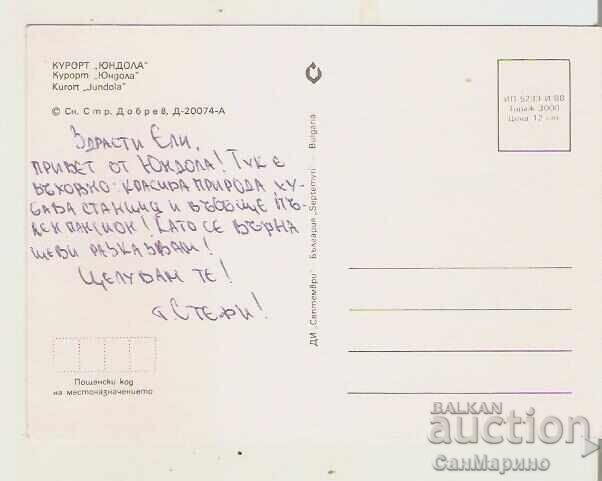 КУРОРТ „ЮНДОЛА"
Курорт „Юндола"
Kurort „Jundola"
© Сн. Стр. Добрев, Д-20074-А
ЗДРАСТИ ЕЛИ,
ПРИВЕТ ОТ ЮНДОЛА! ТУК Е
ВЪХОВНО: КРАСИВА ПРИРОДА, ХУ-
БАВА СТАНЦИЯ И ВЪОБЩЕ ПЪ-
ЛЕН ПАНСИОН! КАТО СЕ ВЪРНА
ЩЕ ВИ РАЗКАЗВАМ!
ЦЕЛУВАМ ТЕ!
СТЕФИ!
Пощенски код
на местоназначението
ДИ „Септември" — България „Septemvri" — Bulgaria
ИП 5233-И-88
Тираж 3000
Цена 12 ст.
BALKAN
auction
СанМарино